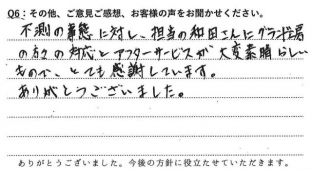 Q6：その他、ご意見ご感想、お客様の声をお聞かせください。
不測の事態に対し、担当の和田さんにグランド工房
の方々の対応とアフターサービスが大変素晴らしい
もので、とても感謝しています。
ありがとうございました。
ありがとうございました。今後の方針に役立たせていただきます。